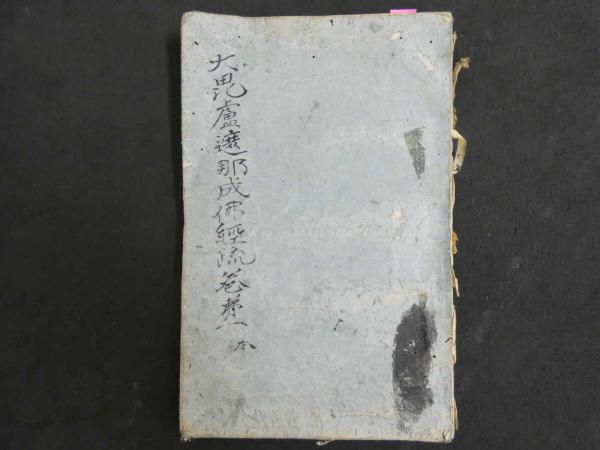 大毘盧遮那成佛經疏卷第一本